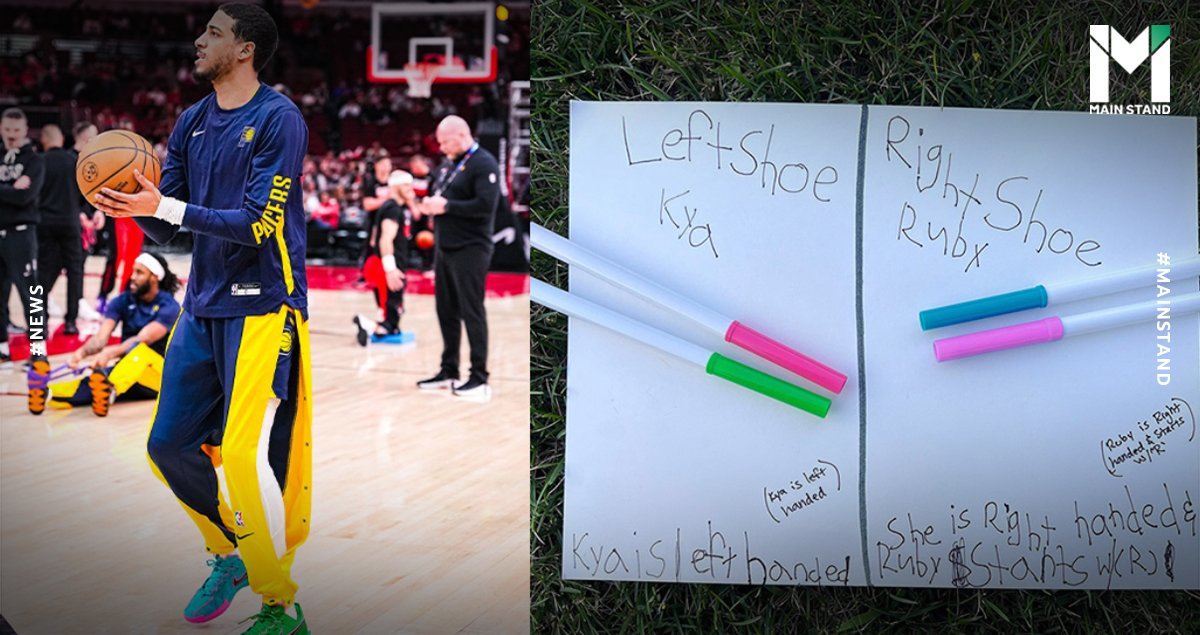 #NEWS
PACERS
MAIN STAND
#MAINSTAND
Left Shoe
Kya
(Kya is left
handed)
Kya is left handed
Right Shoe
Ruby
(Ruby is Right
handed & starts
w/"R")
She is Right handed &
Ruby Starts w/(R)